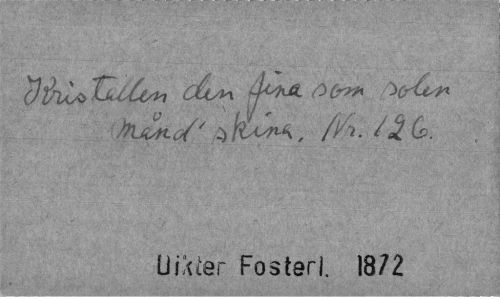 Kristallen den fina som solen
månd' skina. Nr. 126.
Dikter Fosterl. 1872